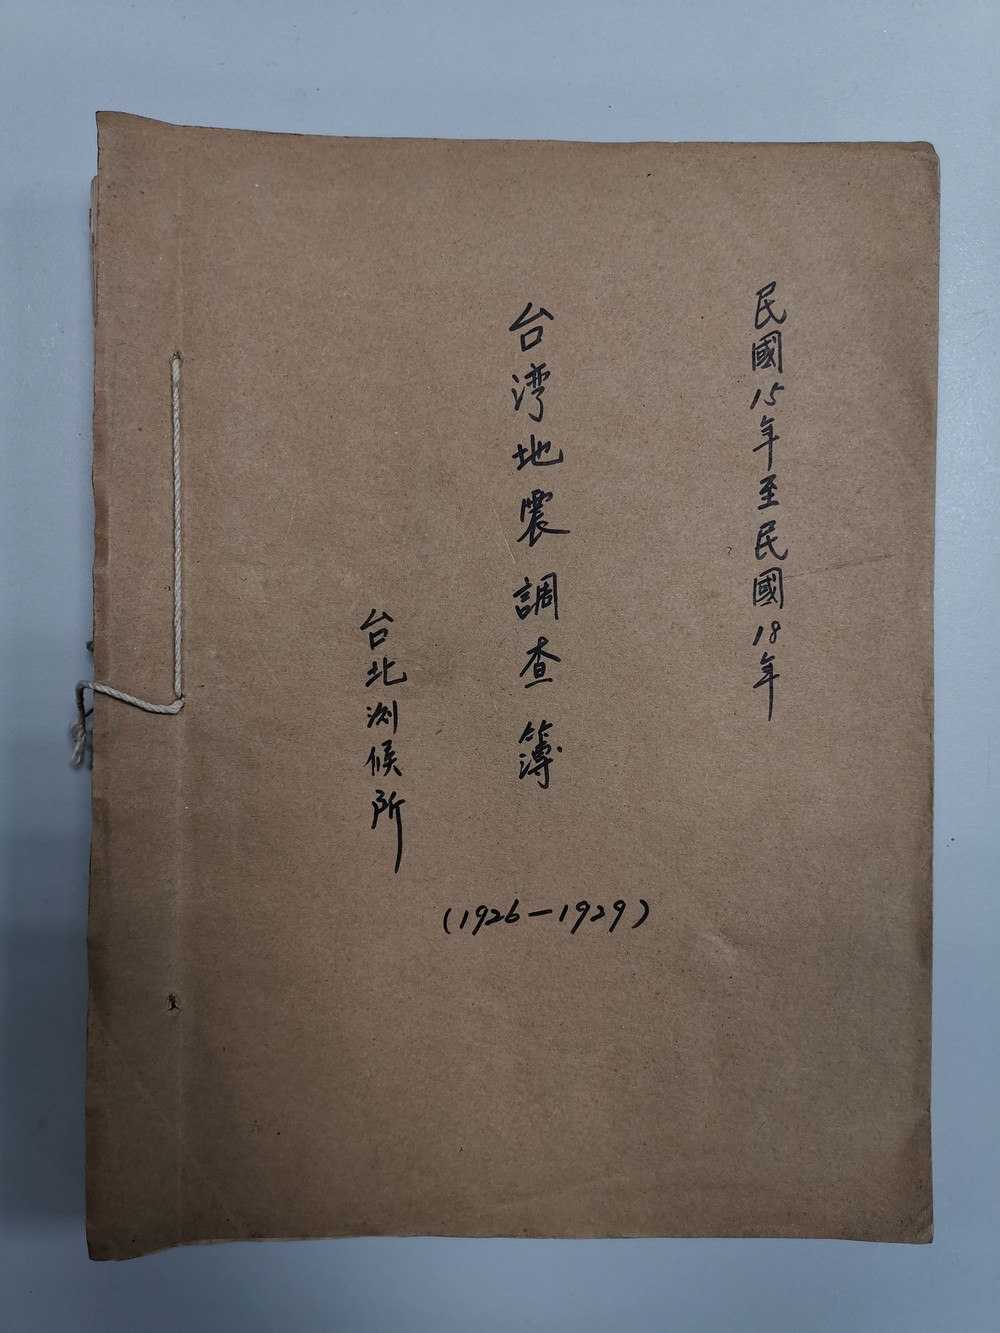 民國15年至民國18年
台湾地震調查簿
台北測候所
(1926-1929)